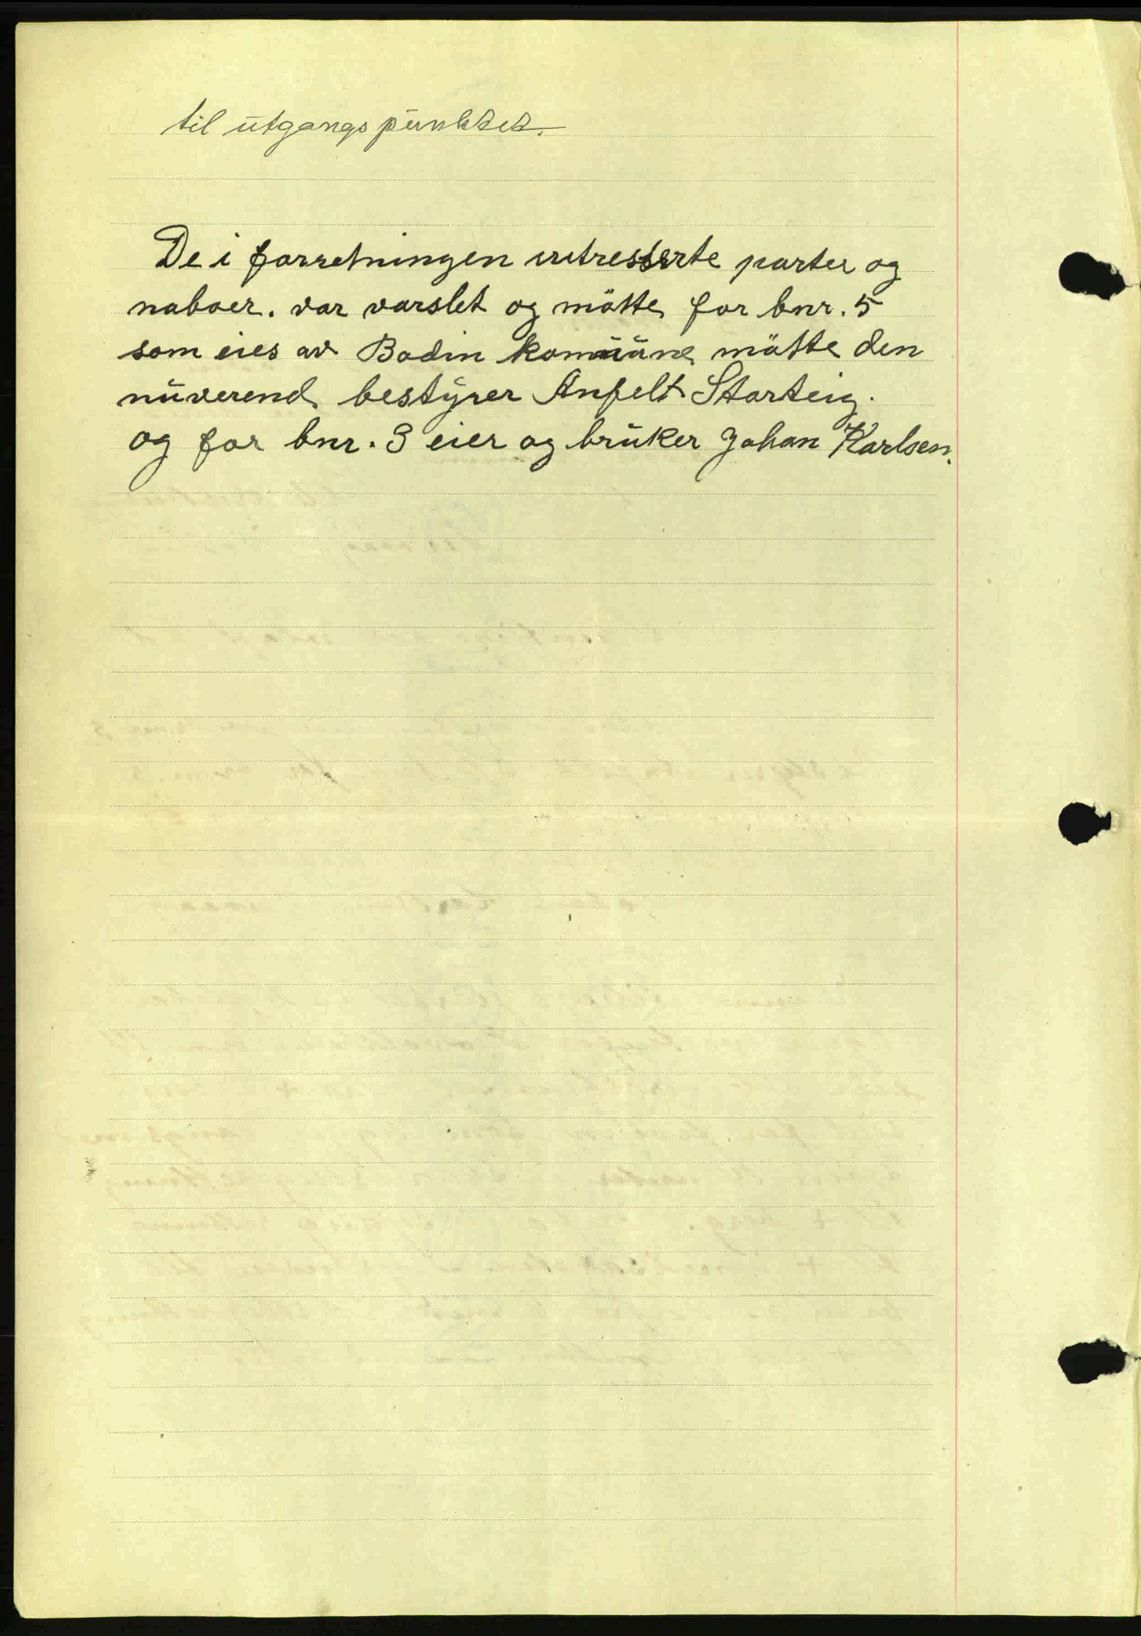 til utgangspunktet.
De i forretningen intresserte parter og
naboer. var varslet og møtte for bnr. 5
som eies av Bodin kommune møtte den
nuverend bestyrer Anfelt Storteig.
og for bnr. 3 eier og bruker Johan Karlsen.